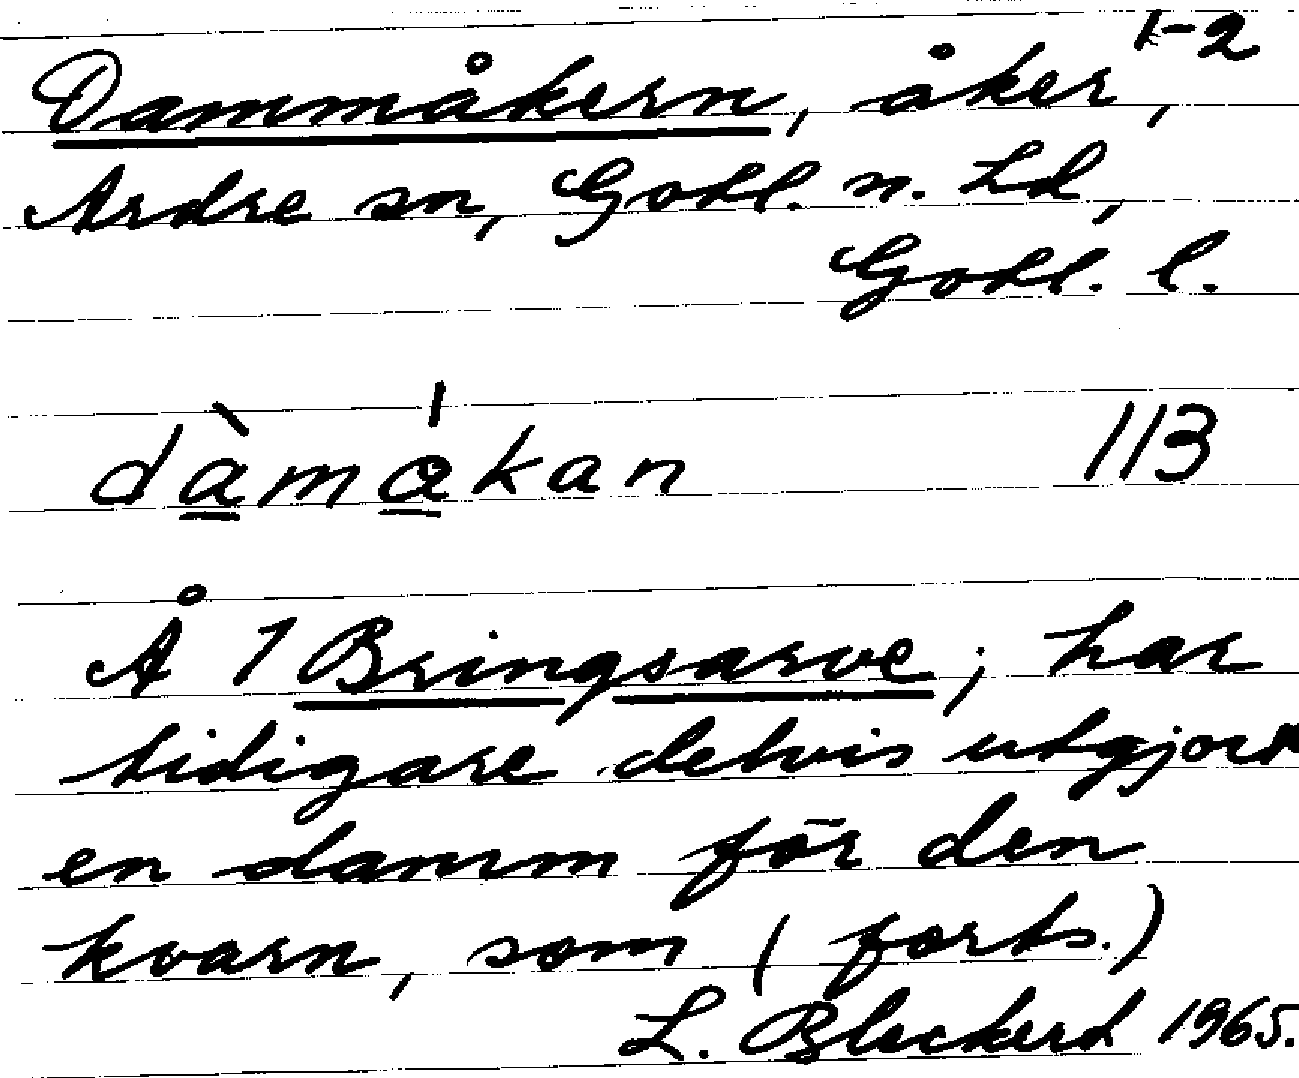 1-2
Dammåkern, åker,
Ardre sn, Gotl. n. hd,
Gotl. l.
dàmåkan 113
Å 1 Bringsarve; har
tidigare delvis utgjort
en damm för den
kvarn, som (forts.)
L. Bleckert 1965.